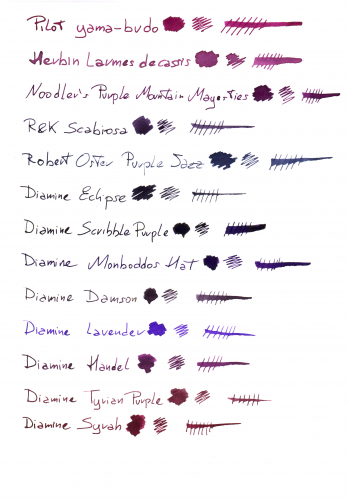 Pilot yama-budo
Herbin Larmes de cassis
Noodler's Purple Mountain Mayesties
R&K Scabiosa
Robert Oster Purple Jazz
Diamine Eclipse
Diamine Scribble Purple
Diamine Monboddos Hat
Diamine Damson
Diamine Lavender
Diamine Handel
Diamine Tyrian Purple
Diamine Syrah